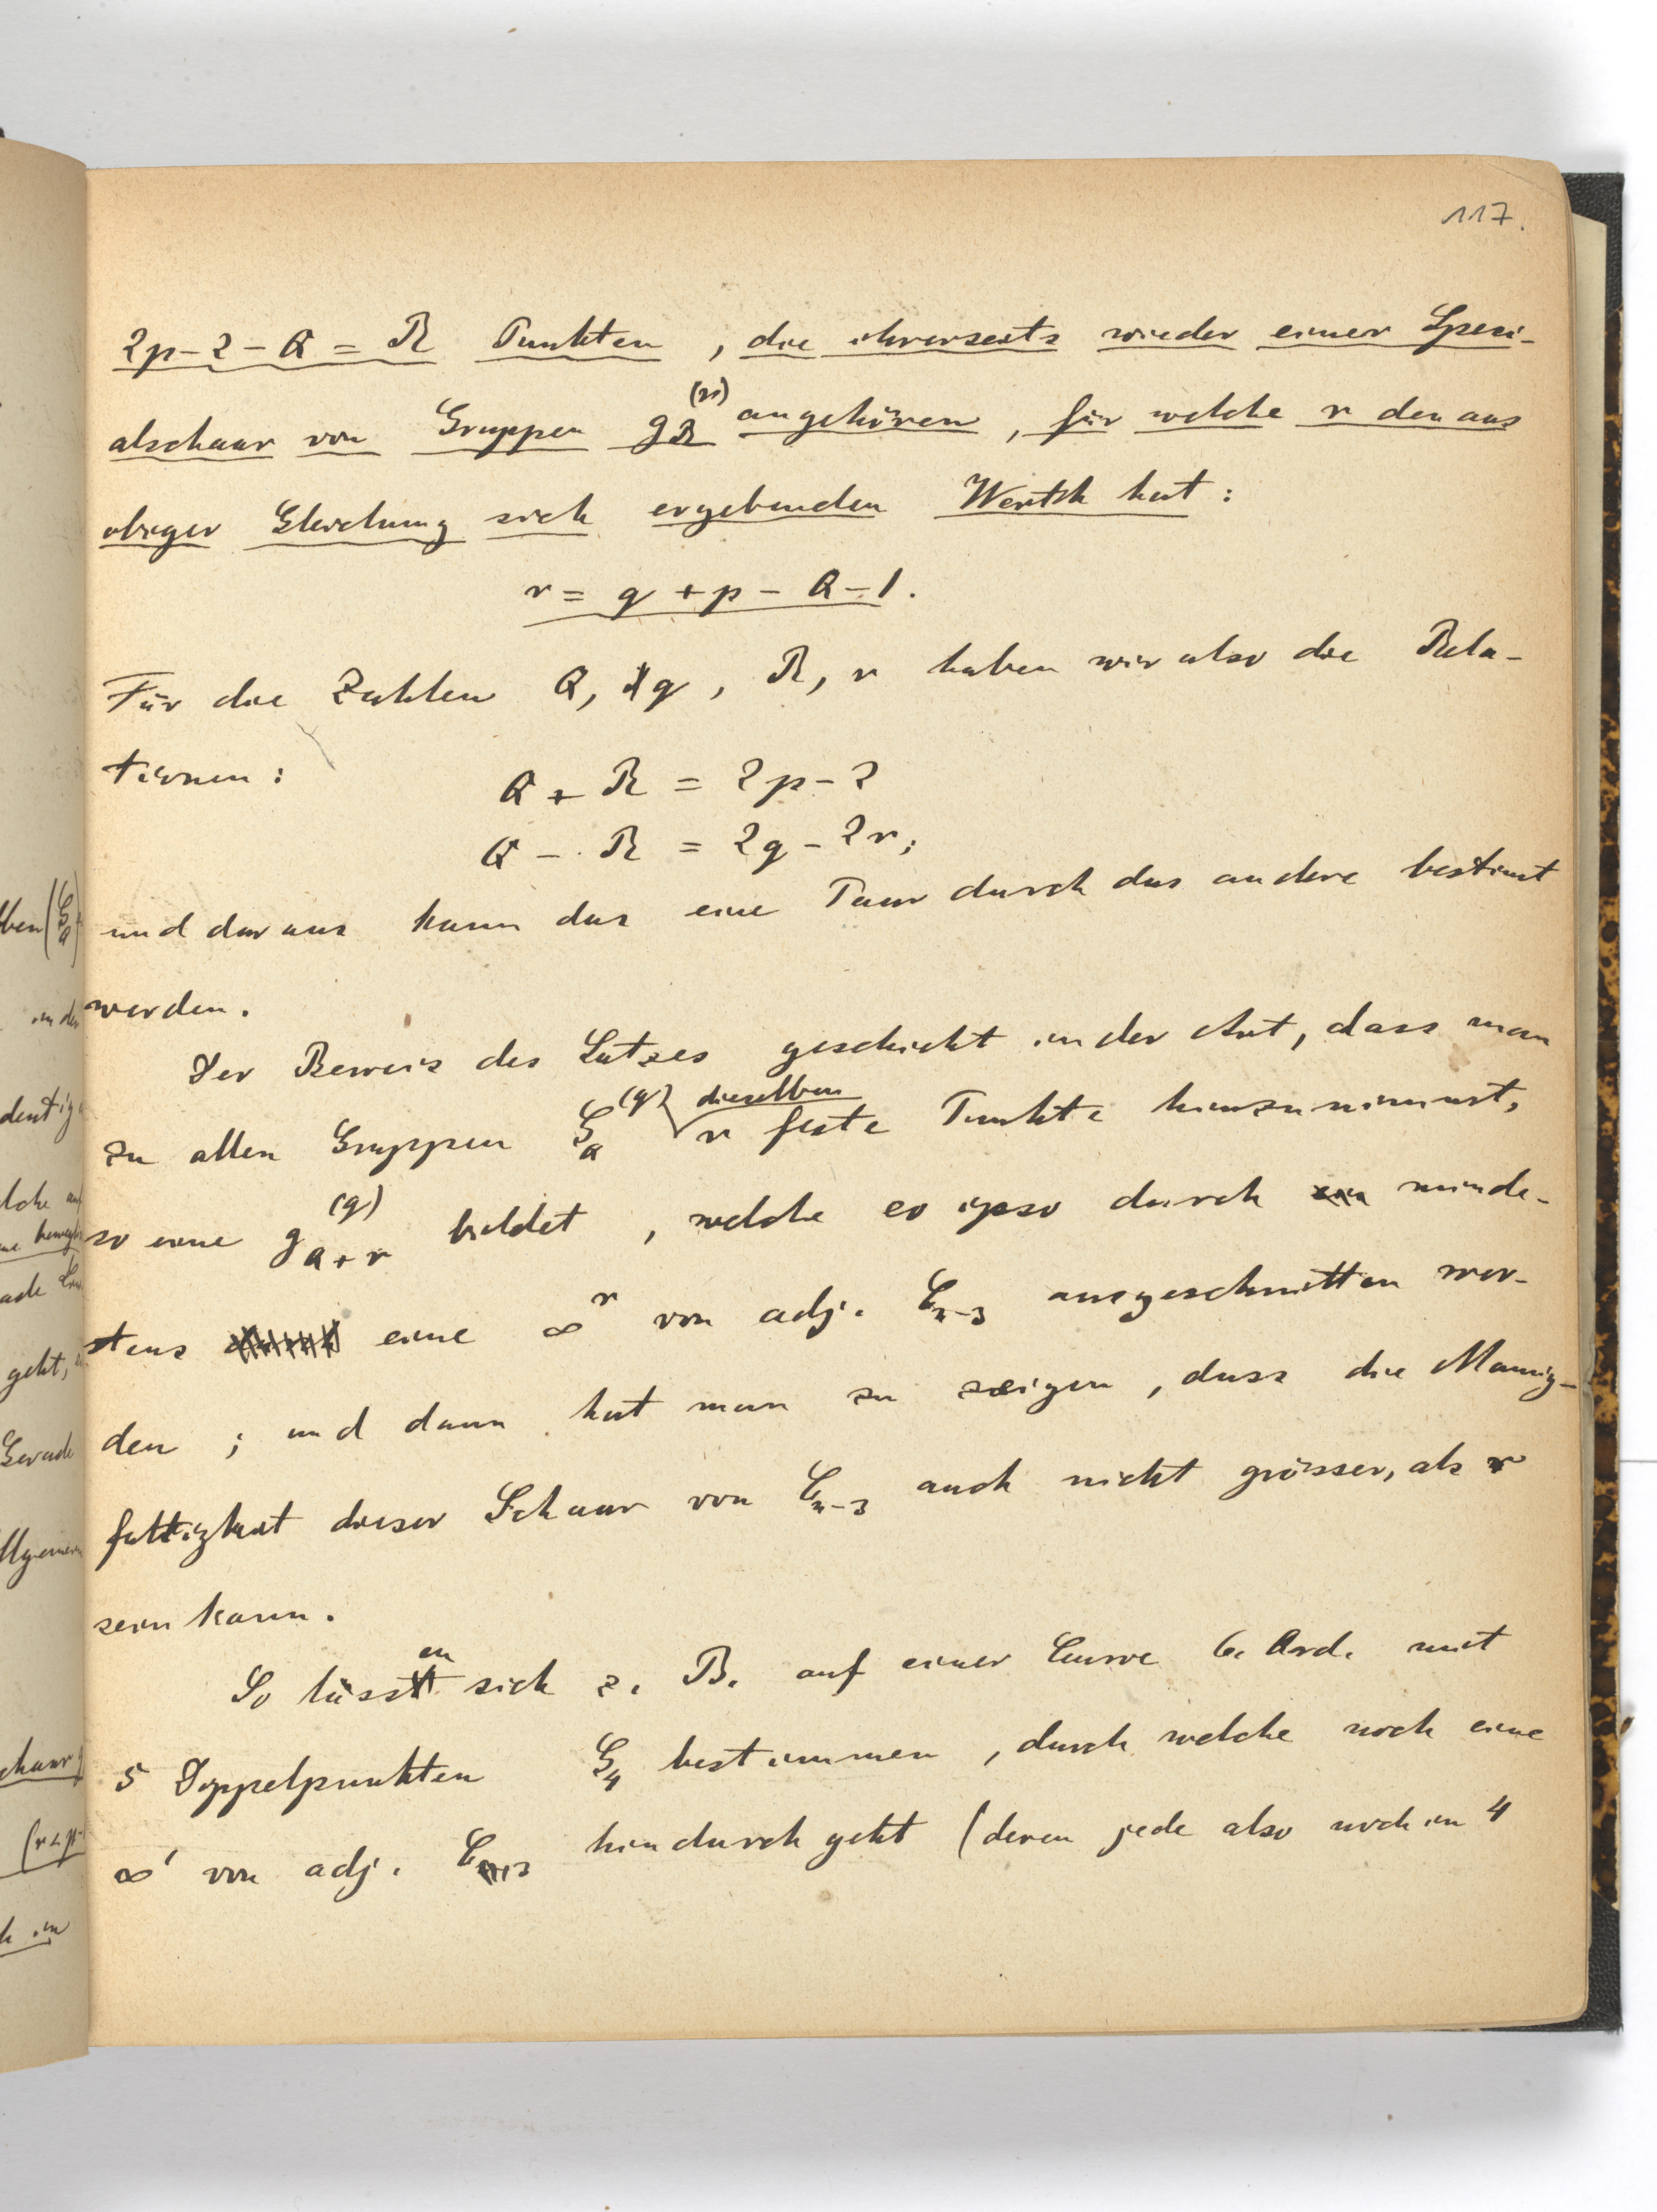 117.
2p-2-Q = R Punkten, die ihrerseits wieder einer Speci-
alschaar von Gruppen g_R^(r) angehören, für welche r den aus
obiger Gleichung sich ergebenden Werth hat:
r = q + p - Q - 1.
Für die Zahlen Q, q, R, r haben wir also die Rela-
tionen:
Q + R = 2p - 2
Q - R = 2q - 2r;
und daraus kann das eine Paar durch das andere bestimt
werden.
Der Beweis des Satzes geschieht in der Art, dass man
zu allen Gruppen G_Q^(q) dieselben r feste Punkte hinzunimmt,
so eine g_{Q+r}^(q) bildet, welche eo ipso durch minde-
stens eine ∞^r von adj. C_{n-3} ausgeschnitten wer-
den; und dann hat man zu zeigen, dass die Mannig-
faltigkeit dieser Schaar von C_{n-3} auch nicht grösser, als r
sein kann.
So lassen sich z. B. auf einer Curve 6. Ord. mit
5 Doppelpunkten G_4 bestimmen, durch welche noch eine
∞^1 von adj. C_3 hindurch geht (deren jede also noch in 4